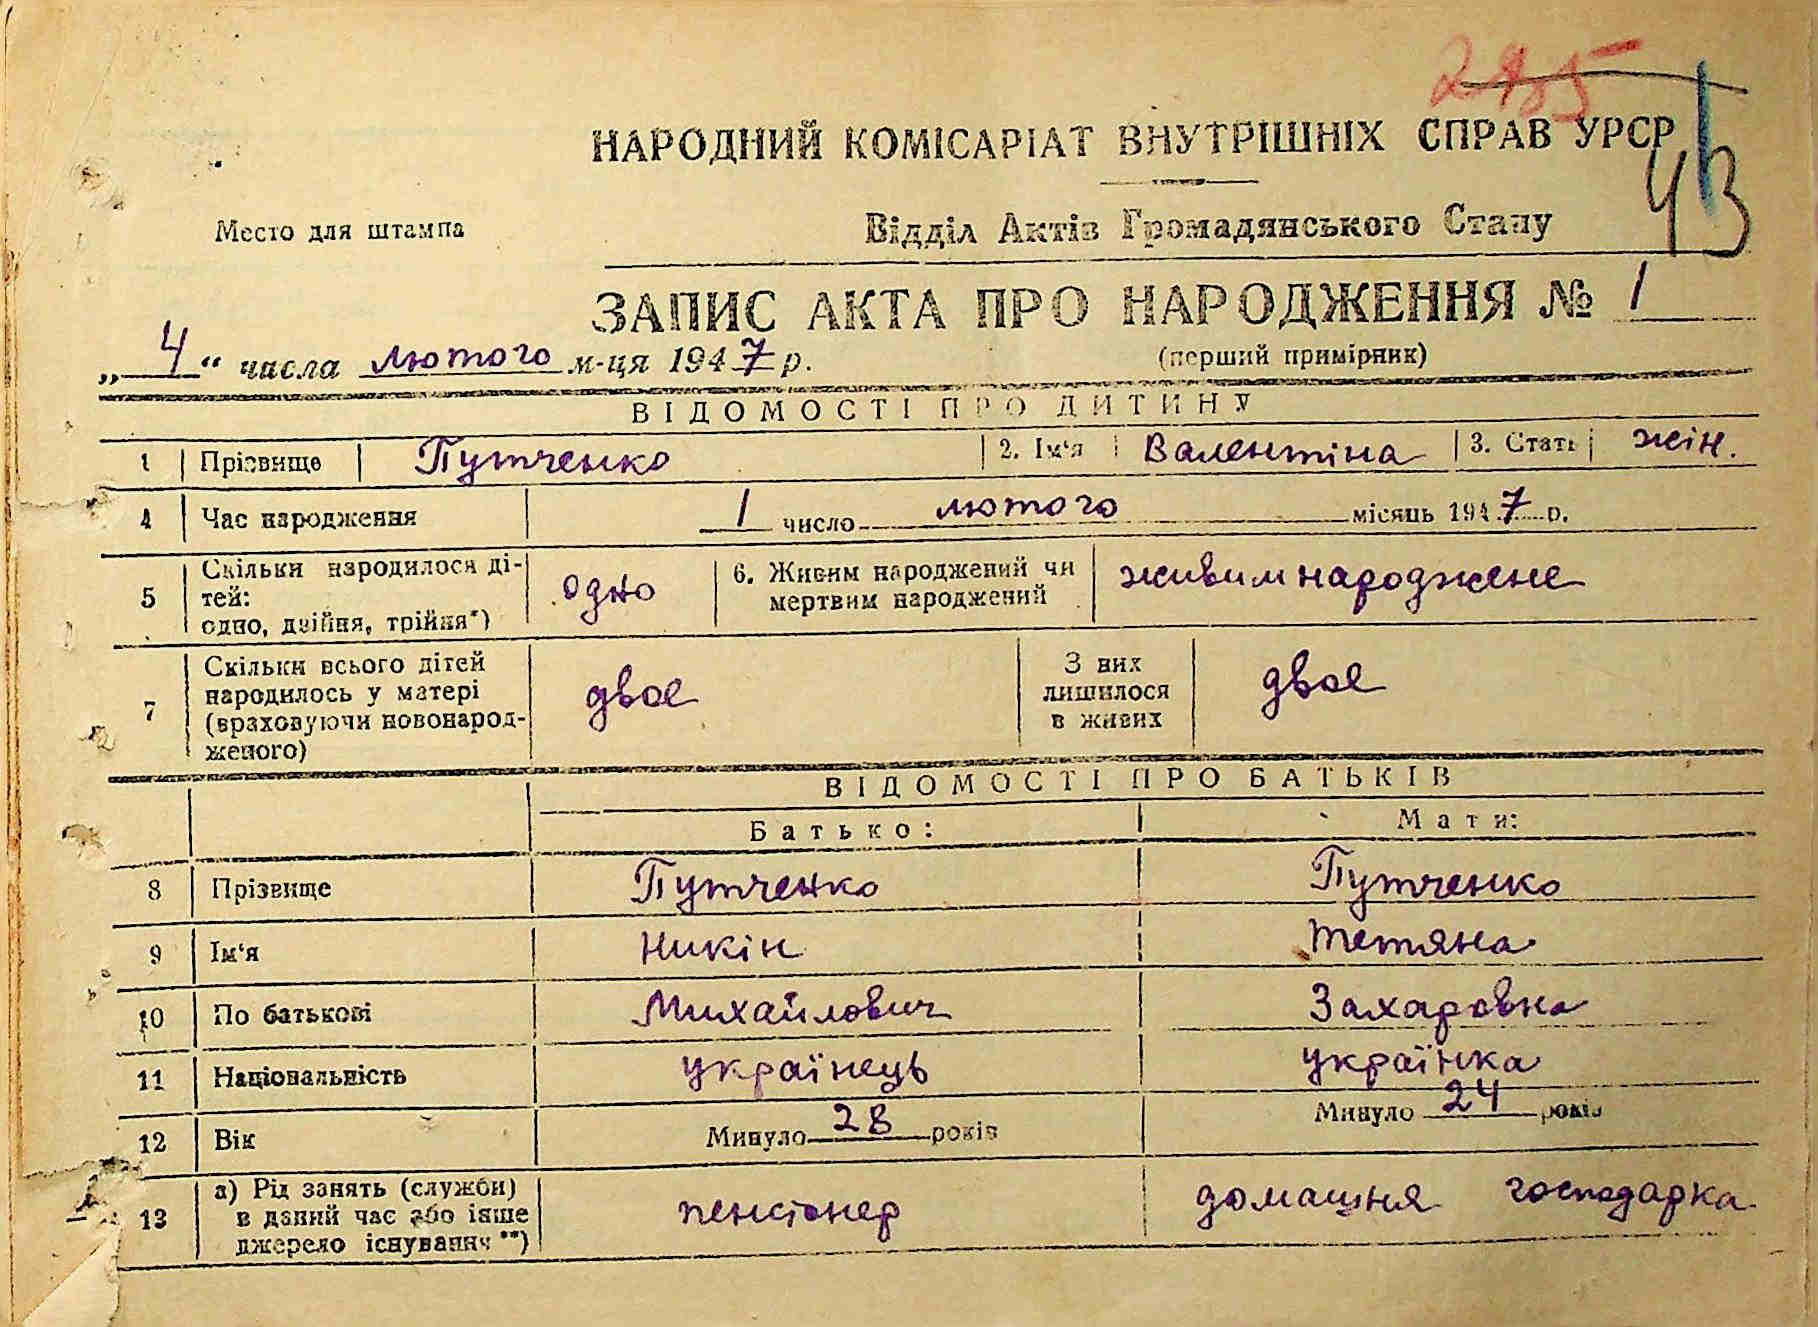 285
НАРОДНИЙ КОМІСАРІАТ ВНУТРІШНІХ СПРАВ УРСР
43
Место для штампа
Відділ Актів Громадянського Стану
ЗАПИС АКТА ПРО НАРОДЖЕННЯ № 1
„4“ числа лютого м-ця 1947 р.
(перший примірник)
ВІДОМОСТІ ПРО ДИТИНУ
1 Прізвище Путченко 2. Ім'я Валентіна 3. Стать жін.
4 Час народження 1 число лютого місяць 1947 р.
5 Скільки народилося ді-
тей:
одно, двійня, трійня*)
одно
6. Живим народжений чи
мертвим народжений
живимнароджене
7 Скільки всього дітей
народилось у матері
(враховуючи новонарод-
женого)
двое
З них
лишилося
в живих
двое
ВІДОМОСТІ ПРО БАТЬКІВ
Батько: Мати:
8 Прізвище Путченко Путченко
9 Ім'я Никін Тетяна
10 По батькові Михайлович Захаровна
11 Національність українець українка
12 Вік Минуло 28 років Минуло 24 років
13 а) Рід занять (служби)
в даний час або інше
джерело існування **)
пенсіонер домашня господарка